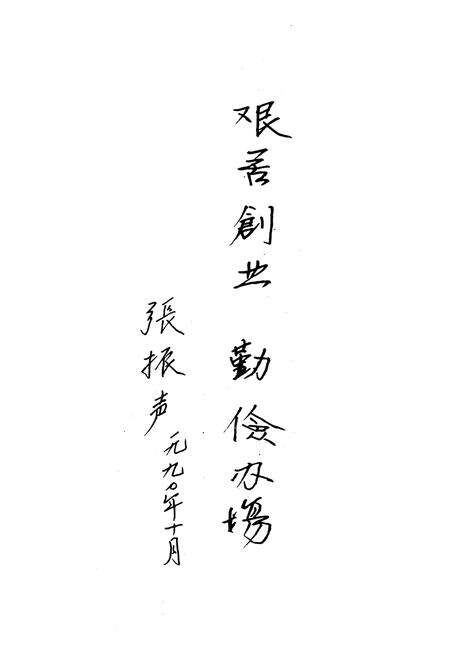 艰苦創业 勤儉办場
張振声
一九九〇年十月